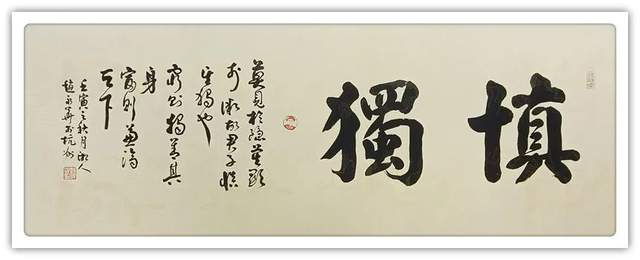 慎獨
莫見於隱莫顯
於微故君子慎
其獨也
窮則獨善其
身
富則兼濟
天下
壬寅之秋月
於杭州